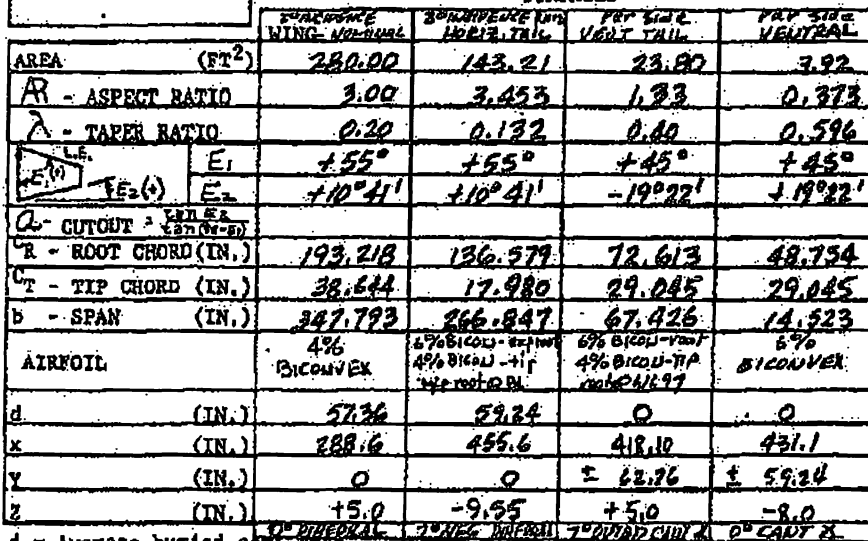 WING NOMINAL HORIZ. TAIL VENT TAIL VENTRAL
PER SIDE PER SIDE
AREA (FT²) 280.00 143.21 23.80 7.92
AR - ASPECT RATIO 3.00 3.453 1.33 0.373
λ - TAPER RATIO 0.20 0.132 0.40 0.596
L.E.
E₁(+) E₁ +55° +55° +45° +45°
E₂(+) E₂ +10°41' +10°41' -19°22' +19°22'
a - CUTOUT =
CR - ROOT CHORD (IN.) 193.218 136.579 72.613 48.734
CT - TIP CHORD (IN.) 38.644 17.980 29.045 29.045
b - SPAN (IN.) 347.793 266.847 67.426 14.523
AIRFOIL 4% BICONVEX 6% BICON- 4% BICON-tip 6% BICON-root 4% BICON-TIP 6% BICONVEX
d (IN.) 57.36 59.24 0 0
x (IN.) 288.6 455.6 418.10 431.1
Y (IN.) 0 0 ± 62.76 ± 59.24
Z (IN.) +5.0 -9.55 +5.0 -8.0
DIHEDRAL 7° NEG DIHEDRAL 7° CANT 0° CANT
d = Average buried